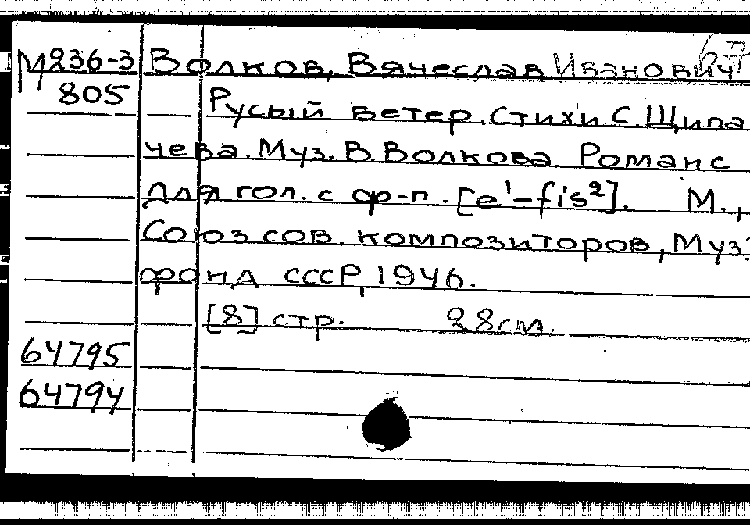 М236-3 Волков, Вячеслав Иванович
805 Русый ветер. Стихи С. Щипа
чева. Муз. В. Волкова. Романс
для гол. с ф-п. [e¹-fis²]. М.,
Союз сов. композиторов, Муз.
фонд СССР, 1946.
[8] стр. 28см.
64795
64794